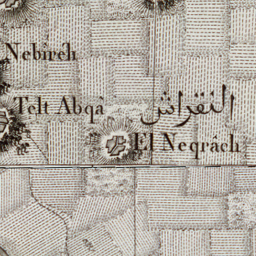 Nebireh
Telt Abqà
النقراش
El Neqrâch